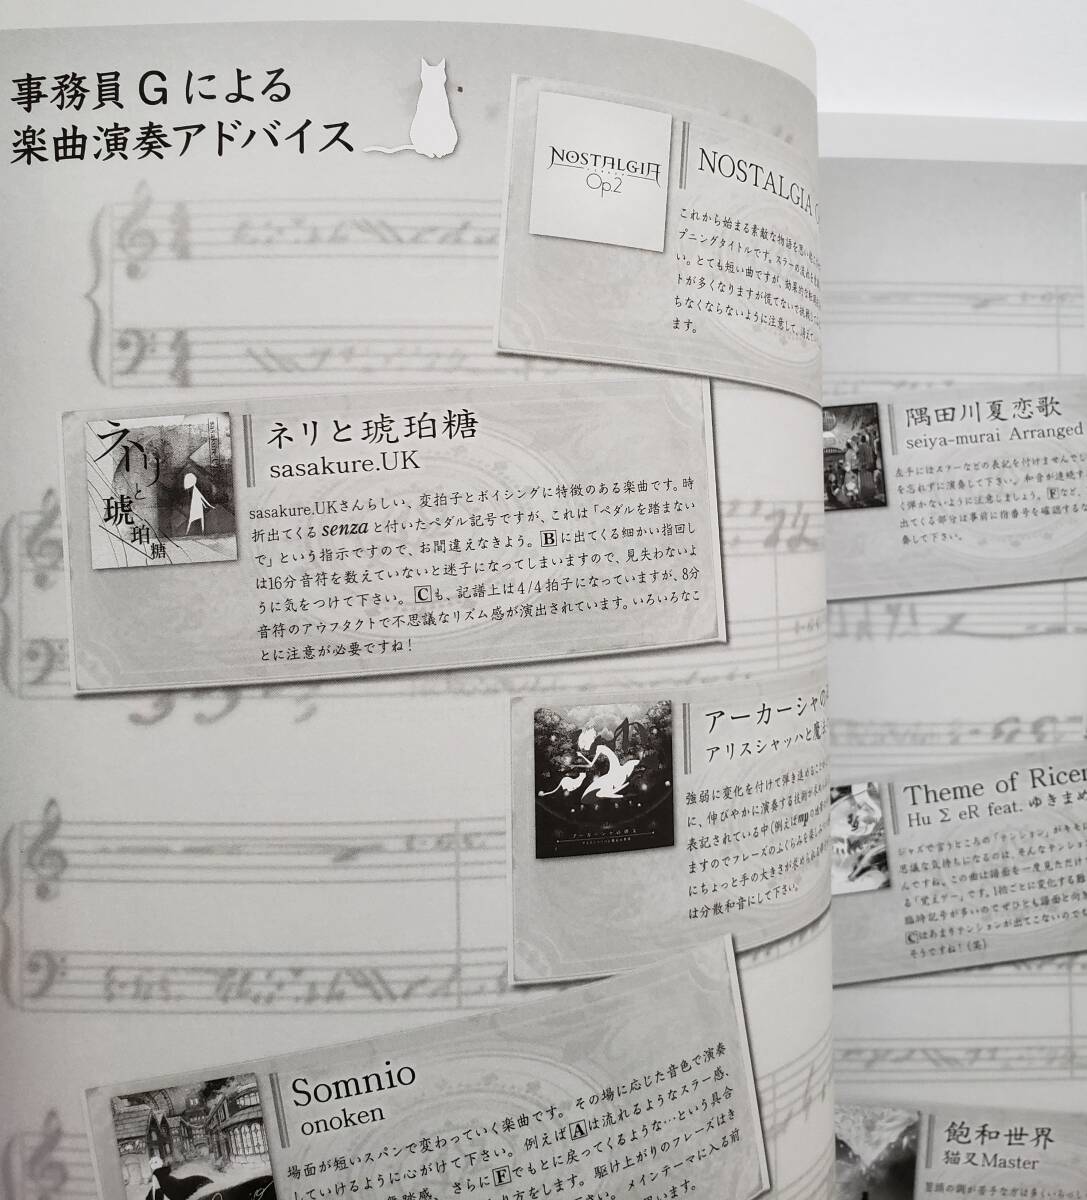 事務員Gによる
楽曲演奏アドバイス
NOSTALGIA
Op.2
NOSTALGIA
これから始まる素敵な物語を
プニングタイトルです。スラーの流れを
い。とても短い曲ですが、効果的な
トが多くなりますが慌てないで挑戦して
ちなくならないように注意して、
ます。
ネリと琥珀糖
ネリと琥珀糖
sasakure.UK
sasakure.UKさんらしい、変拍子とボイシングに特徴のある楽曲です。時
折出てくるsenzaと付いたペダル記号ですが、これは「ペダルを踏まない
で」という指示ですので、お間違えなきよう。Bに出てくる細かい指回し
は16分音符を数えていないと迷子になってしまいますので、見失わないよ
うに気をつけて下さい。Cも、記譜上は4/4拍子になっていますが、8分
音符のアウフタクトで不思議なリズム感が演出されています。いろいろなこ
とに注意が必要ですね！
アーカーシャの
アリスシャッハと魔法
強弱に変化を付けて弾き進めること
に、伸びやかに演奏する技術が
表記されている中(例えばmpの
ますのでフレーズのふくらみを
にちょっと手の大きさが求められる
は分散和音にして下さい。
Somnio
onoken
場面が短いスパンで変わっていく楽曲です。その場に応じた音色で演奏
していけるように心がけて下さい。例えばAは流れるようなスラー感、
舞踏感、さらにFでもとに戻ってくるような…という具合
り方をします。駆け上がりのフレーズはき
下さい。メインテーマに入る前
思います。
隅田川夏恋歌
seiya-murai Arranged
左手にはスラーなどの表記を付けませんでし
を忘れずに演奏して下さい。和音が連続す
く弾かないように注意しましょう。Fなど、
出てくる部分は事前に指番号を確認するな
奏して下さい。
Theme of Ricer
Hu Σ eR feat. ゆきまめ
ジャズで言うところの「テンション」がキモ
思議な気持ちになるのは、そんなテンション
んですね。この曲は譜面を一度見ただけ
る「覚えゲー」です。1拍ごとに変化する
臨時記号が多いのでぜひとも譜面と向
Cはあまりテンションが出てこないので
そうですね！(笑)
飽和世界
猫叉Master